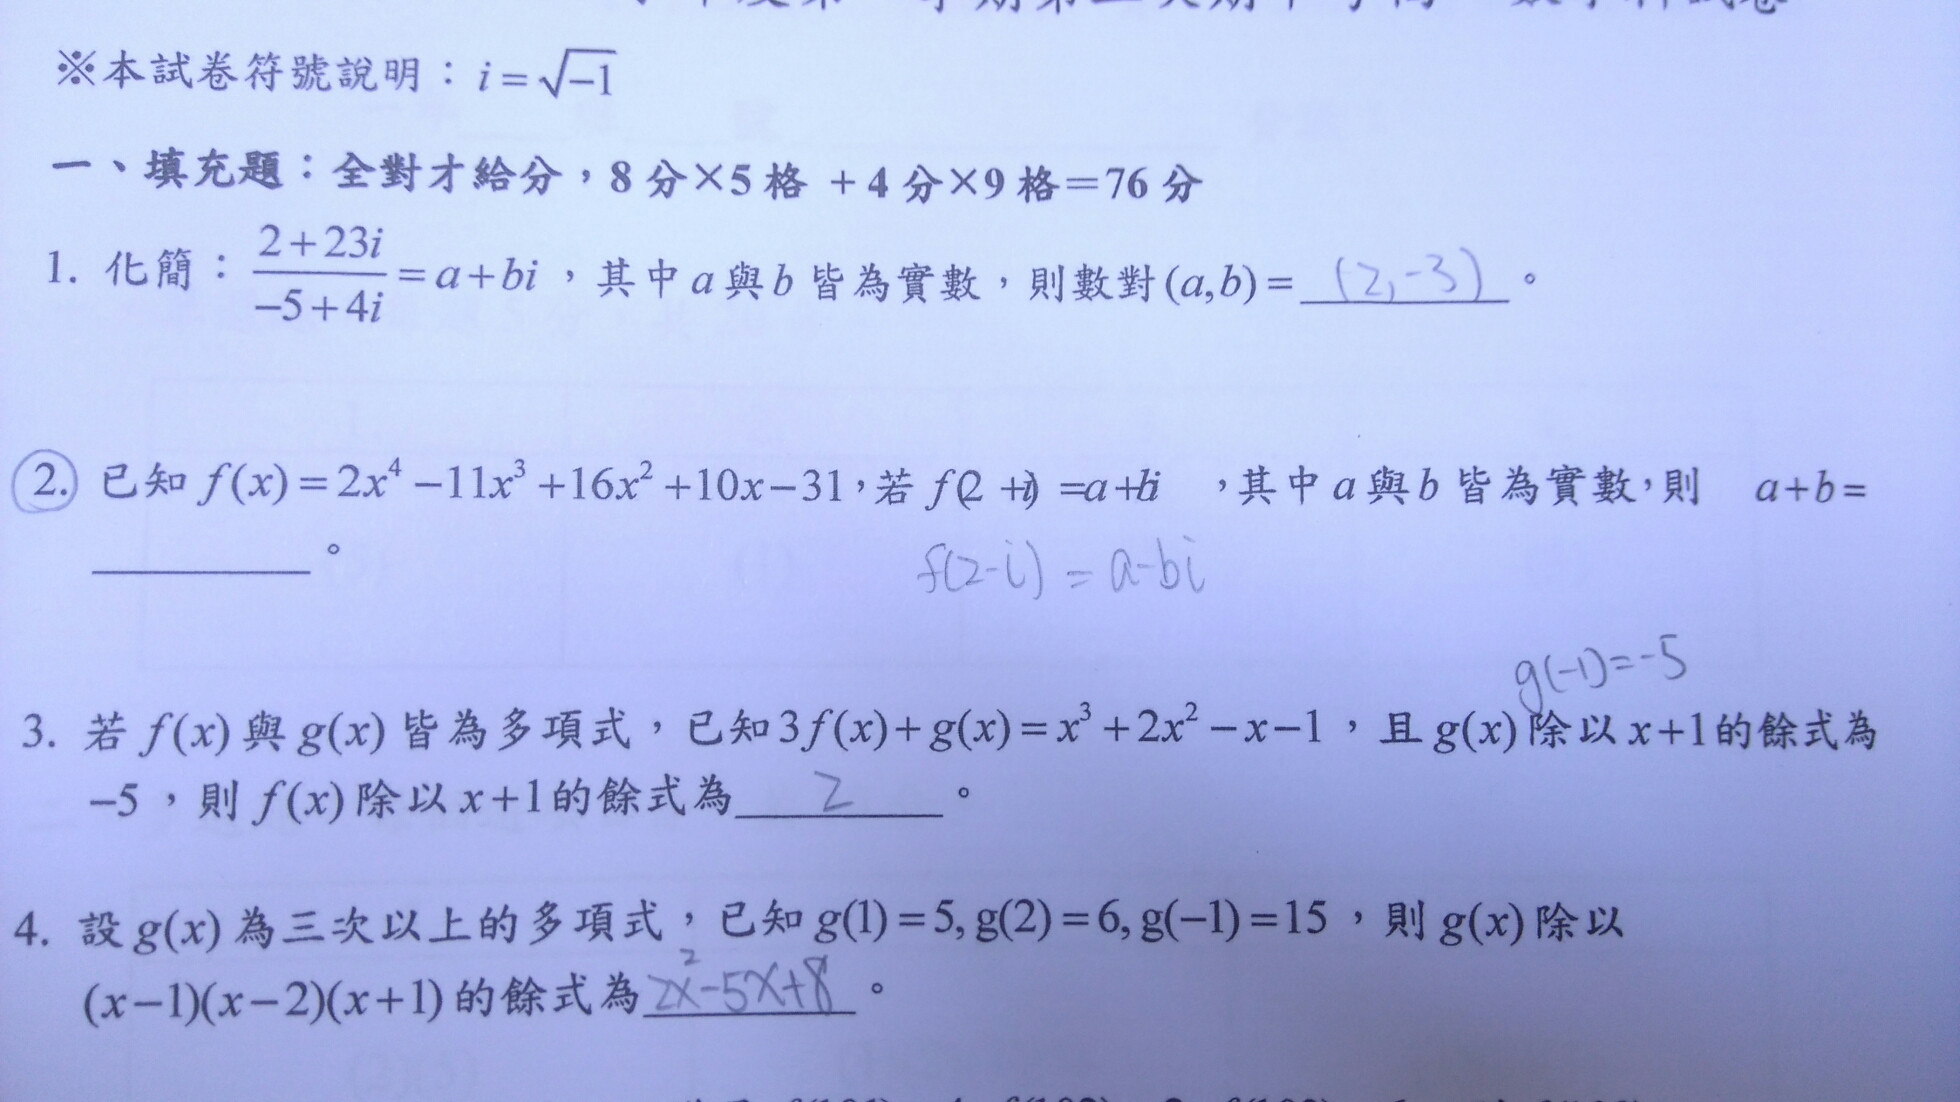 ※本試卷符號說明：i=√-1
一、填充題：全對才給分，8分×5格 +4分×9格=76分
1. 化簡：(2+23i)/(-5+4i)=a+bi，其中a與b皆為實數，則數對(a,b)= (2,-3) 。
2. 已知f(x)=2x⁴-11x³+16x²+10x-31，若f(2+i)=a+bi ，其中a與b皆為實數，則 a+b=
。
f(2-i)=a-bi
g(-1)=-5
3. 若f(x)與g(x)皆為多項式，已知3f(x)+g(x)=x³+2x²-x-1，且g(x)除以x+1的餘式為
-5，則f(x)除以x+1的餘式為 2 。
4. 設g(x)為三次以上的多項式，已知g(1)=5, g(2)=6, g(-1)=15，則g(x)除以
(x-1)(x-2)(x+1)的餘式為 2x²-5x+8 。